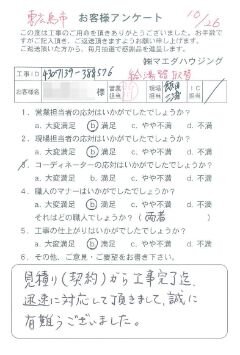 東広島市 お客様アンケート 10/26
この度は工事のご用命を頂きありがとうございました。お手数で
すがご記入頂き、ご返送頂きますようお願い申し上げます。
ご返送頂いた方から、毎月抽選で感謝品を進呈します。
㈱マエダハウジング
工事ID 給湯器取替
お客様名 様 営業担当 現場担当 IC担当
1. 営業担当者の応対はいかがでしたでしょうか?
a. 大変満足 b. 満足 c. やや不満 d. 不満
2. 現場担当者の応対はいかがでしたでしょうか?
a. 大変満足 b. 満足 c. やや不満 d. 不満
3. コーディネーターの応対はいかがでしたでしょうか?
a. 大変満足 b. 満足 c. やや不満 d. 不満
4. 職人のマナーはいかがでしたでしょうか?
a. 大変満足 b. 満足 c. やや不満 d. 不満
それはどの職人でしょうか? (両者)
5. 工事の仕上がりはいかがでしたでしょうか?
a. 大変満足 b. 満足 c. やや不満 d. 不満
6. その他、ご意見・ご要望をお書き下さい。
見積り(契約)から工事完了迄、
迅速に対応して頂きまして、誠に
有難うございました。